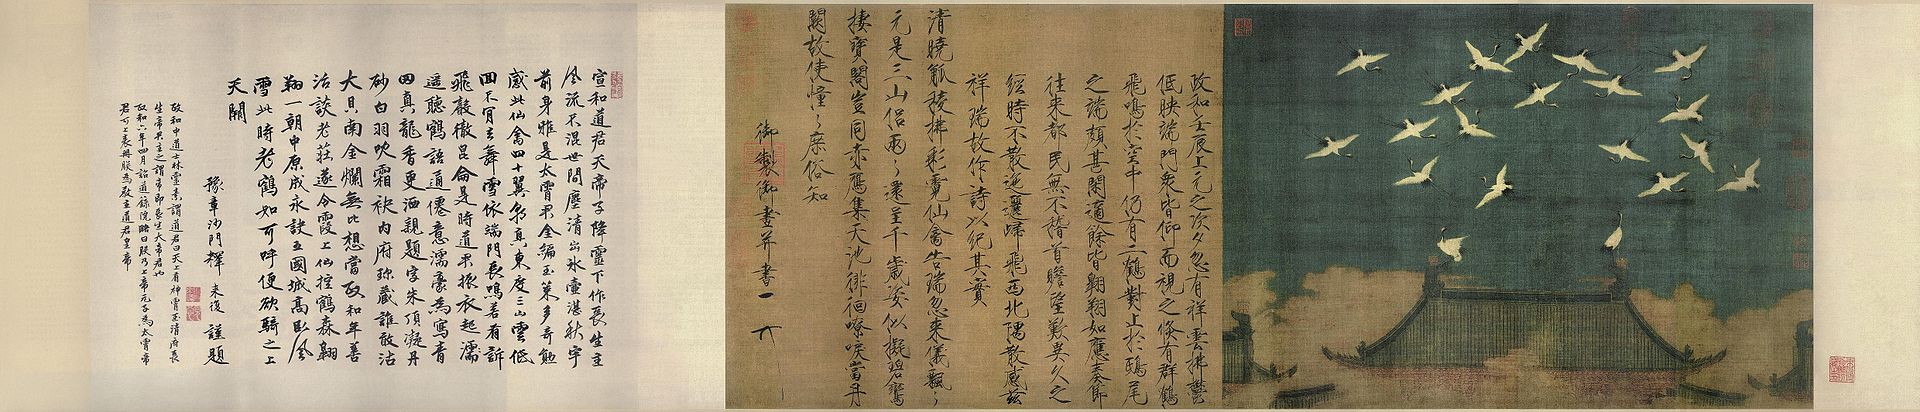 政和壬辰上元之次夕忽有祥雲拂鬱
低映端門衆皆仰而視之倐有群鶴
飛鳴於空中仍有二鶴對止於鴟尾
之端頗甚閑適餘皆翱翔如應奏節
往来都民無不稽首瞻望歎異久之
經時不散迤邐歸飛西北隅散感茲
祥瑞故作詩以紀其實
清曉觚稜拂彩霓仙禽告瑞忽来儀飄〻
元是三山侶兩〻還呈千歲姿似擬碧鸞
棲寳閣豈同赤鴈集天池徘徊嘹唳當丹
闕故使憧〻庶俗知
御製御畫并書
宣和道君天帝子降靈下作長生主
風流不混世間塵清出氷壺湛秋宇
前身雅是太霄君金編玉策多奇勉
感此仙禽四十翼朝真東度三山雲低
回不肯去舞雪依端門長鳴若有訴
飛聲徹崑崙是時道君振衣起濡
遥聽鶴語通僊意濡毫為寫青
田真龍香更洒親題字朱頂凝丹
砂白羽吹霜袂内府珎藏誰敢沽
大貝南金爛無比想當政和年善
治談老莊遂令霞上仙控鶴森翱
翔一朝中原成永訣五國城高臥風
雪此時老鶴如可呼便欲騎之上
天闕
豫章沙門釋 来復 謹題
政和中道士林靈素謂道君曰天上有神霄玉清府長
生帝君主之謂帝即長生大帝君也
政和六年四月詔道籙院略曰朕乃上帝元子為太霄帝
君可上表冊朕為教主道君皇帝